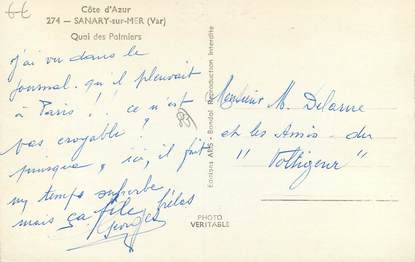 6€
Côte d'Azur
274 — SANARY-sur-MER (Var)
Quai des Palmiers
j'ai vu dans le
journal qu'il pleuvait
à Paris !! ce n'est
pas croyable !
puisque, ici, il fait
un temps superbe,
mais ça file, hélas
Georges
Editions ARIS - Bandol. Reproduction Interdite
Monsieur M. Delarue
et les Amis du
"Voltigeur"
PHOTO
VERITABLE